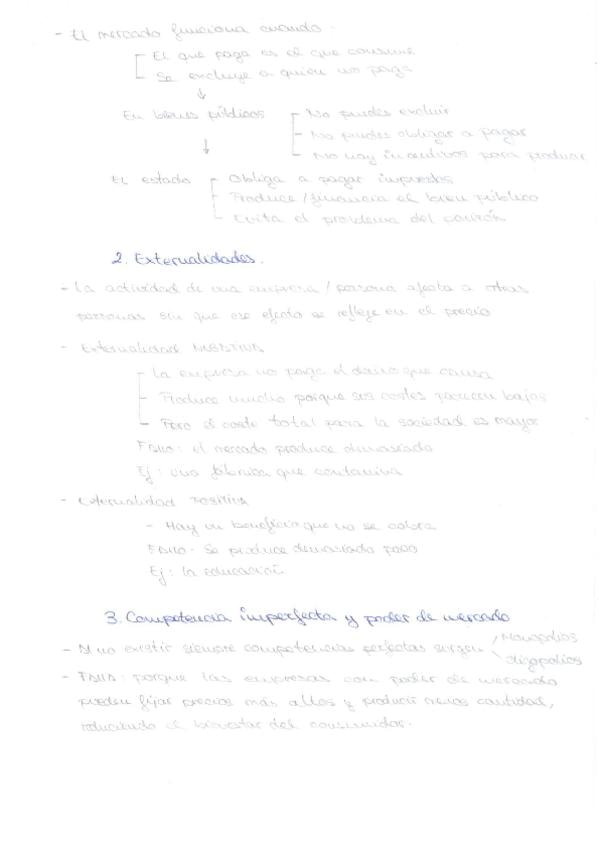 - El mercado funciona cuando:
El que paga es el que consume
Se excluye a quien no paga
↓
En bienes públicos
- No puedes excluir
- No puedes obligar a pagar
- No hay incentivos para producir
↓
El estado
- Obliga a pagar impuestos
- Produce/financia el bien público
- Evita el problema del
2. Externalidades.
- La actividad de una empresa/persona afecta a otras
personas sin que ese efecto se refleje en el precio
- Externalidad NEGATIVA
- La empresa no paga el daño que causa
- Produce mucho porque sus costes parecen bajos
- Pero el coste total para la sociedad es mayor
FALLO: el mercado produce demasiado
Ej: una fábrica que contamina
- Externalidad POSITIVA
- Hay un beneficio que no se cobra
FALLO: Se produce demasiado poco
Ej: la educación
3. Competencia imperfecta y poder de mercado
- Al no existir siempre competencias perfectas surgen
Monopolios
Oligopolios
- FALLO: porque las empresas con poder de mercado
pueden fijar precios más altos y producir menos cantidad,
reduciendo el bienestar del consumidor.